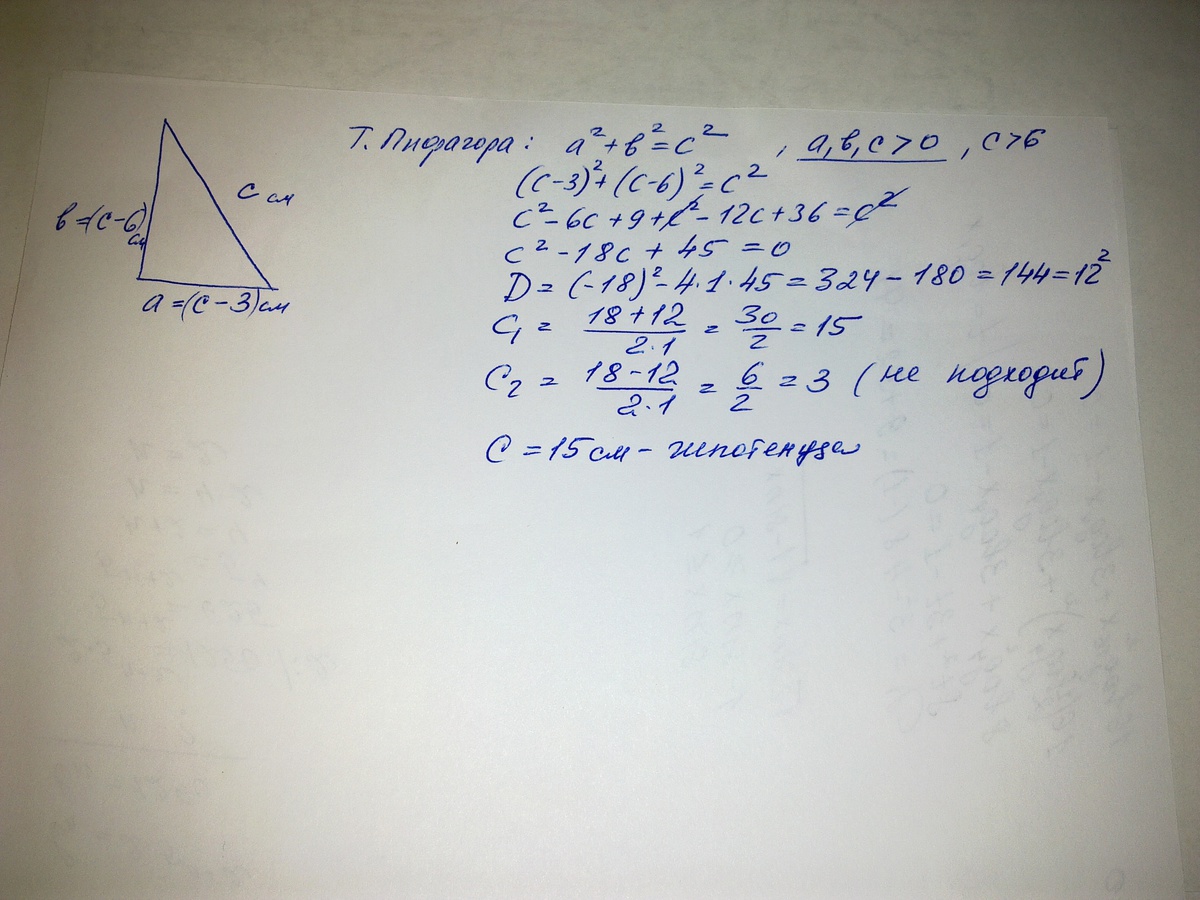 Т. Пифагора: a² + в² = c² , a, в, c > 0 , c > 6
(c-3)² + (c-6)² = c²
c² - 6c + 9 + c² - 12c + 36 = c²
c² - 18c + 45 = 0
D = (-18)² - 4·1·45 = 324 - 180 = 144 = 12²
C₁ = (18+12)/(2·1) = 30/2 = 15
C₂ = (18-12)/(2·1) = 6/2 = 3 (не подходит)
C = 15 см - гипотенуза
в = (c-6) см
c см
a = (c-3) см